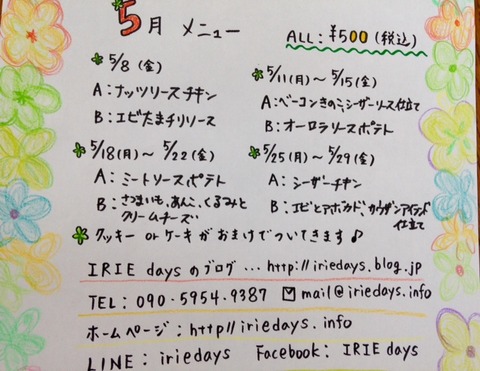 5月 メニュー
ALL:¥500(税込)
5/8(金)
A:ナッツソースチキン
B:エビたまチリソース
5/11(月)~5/15(金)
A:ベーコンきのこシーザーソース仕立て
B:オーロラソースポテト
5/18(月)~5/22(金)
A:ミートソースポテト
B:さつまいも、あんこ、くるみと
クリームチーズ
5/25(月)~5/29(金)
A:シーザーチキン
B:エビとアボカド、サウザンアイランド
仕立て
クッキー orケーキがおまけでついてきます♪
IRIE daysのブログ…http://iriedays.blog.jp
TEL:090-5954-9387 mail@iriedays.info
ホームページ:http//iriedays.info
LINE:iriedays Facebook:IRIE days